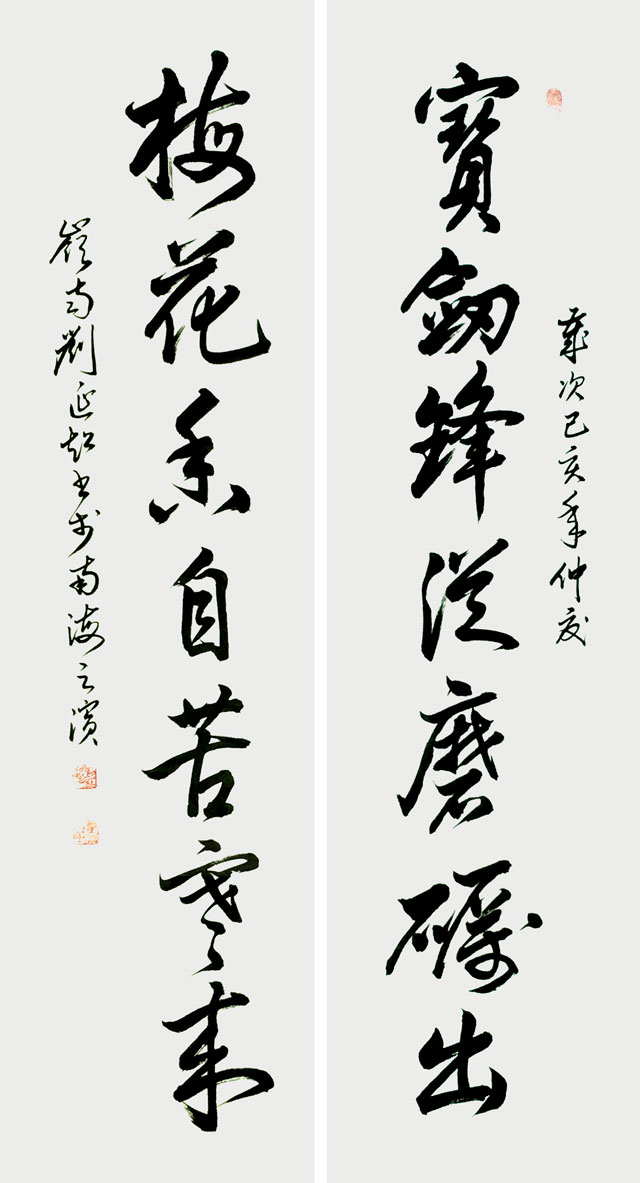 歲次己亥年仲夏
寶劒鋒從磨礪出
梅花香自苦寒來
嶺南劉延超書於南海之濱